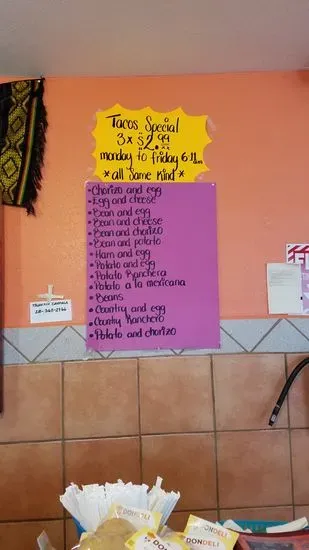 Tacos Special
3 x $2.99
monday to friday 6-11am
*all Same Kind*
•Chorizo and egg
•Egg and cheese
•Bean and egg
•Bean and cheese
•Bean and chorizo
•Bean and potato
•Ham and egg
•Potato and egg
•Potato Ranchera
•Potato a la mexicana
•Beans
•Country and egg
•Country Ranchero
•Potato and chorizo
DONDELI
DONDELI
DONDELI